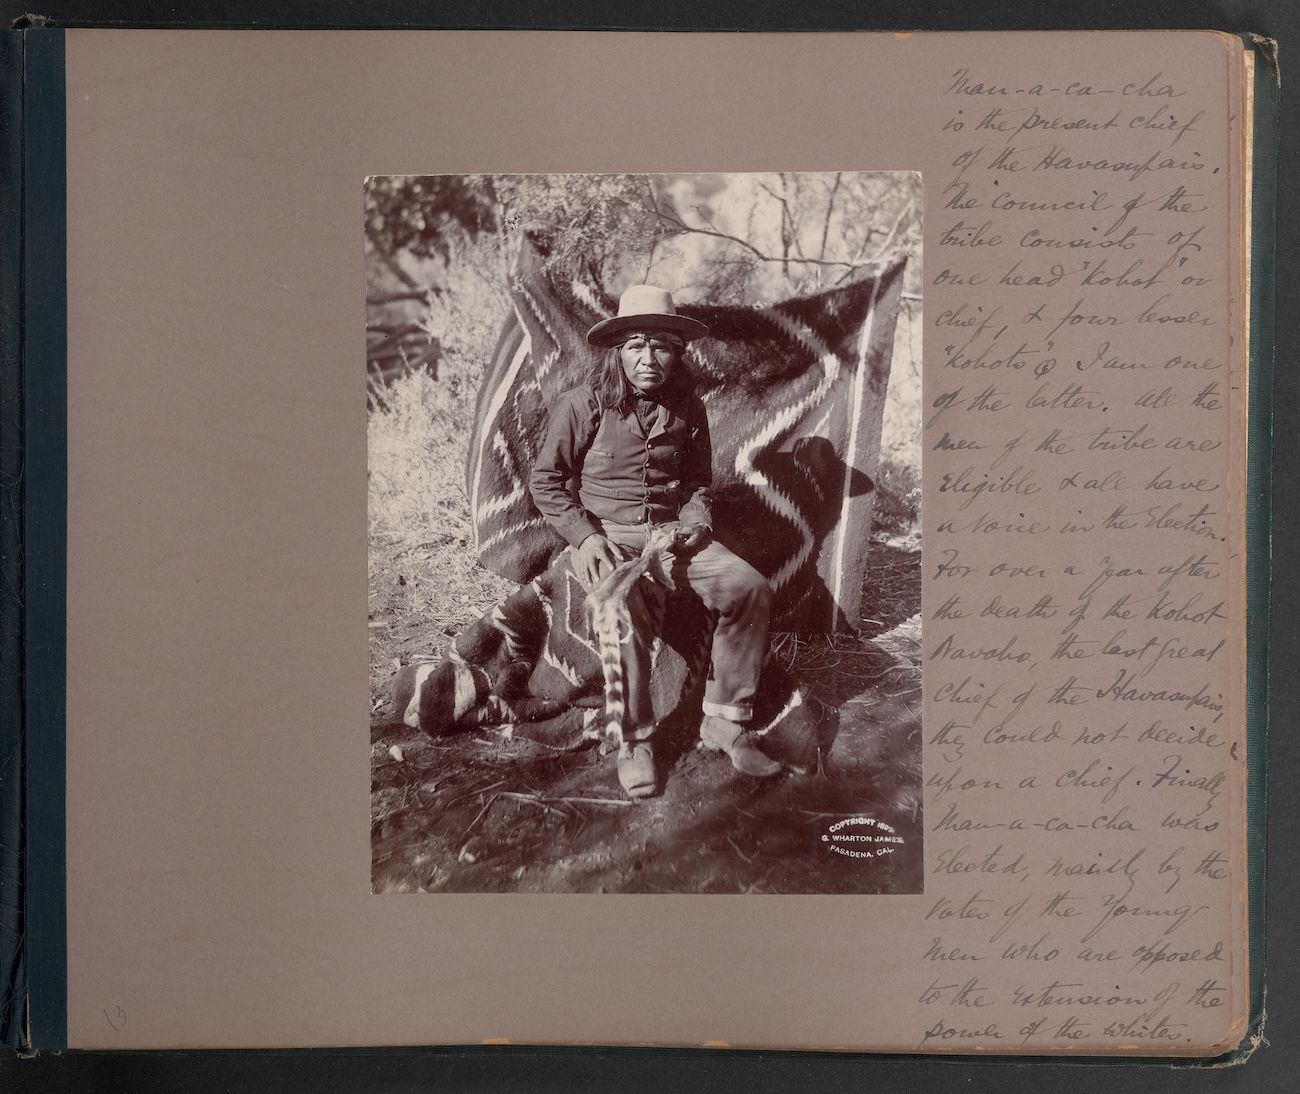 Man-a-ca-cha
is the present chief
of the Havasupais.
The Council of the
tribe consists of
one head "Kohot" or
chief, & four lesser
"Kohots", I am one
of the latter. All the
men of the tribe are
eligible & all have
a voice in the Election.
For over a year after
the death of the Kohot
Navaho, the last great
chief of the Havasupais,
they could not decide
upon a chief. Finally
Man-a-ca-cha was
Elected, mainly by the
votes of the Young
men who are opposed
to the extension of the
power of the whites.
COPYRIGHT
G. WHARTON JAMES
PASADENA, CAL.
13